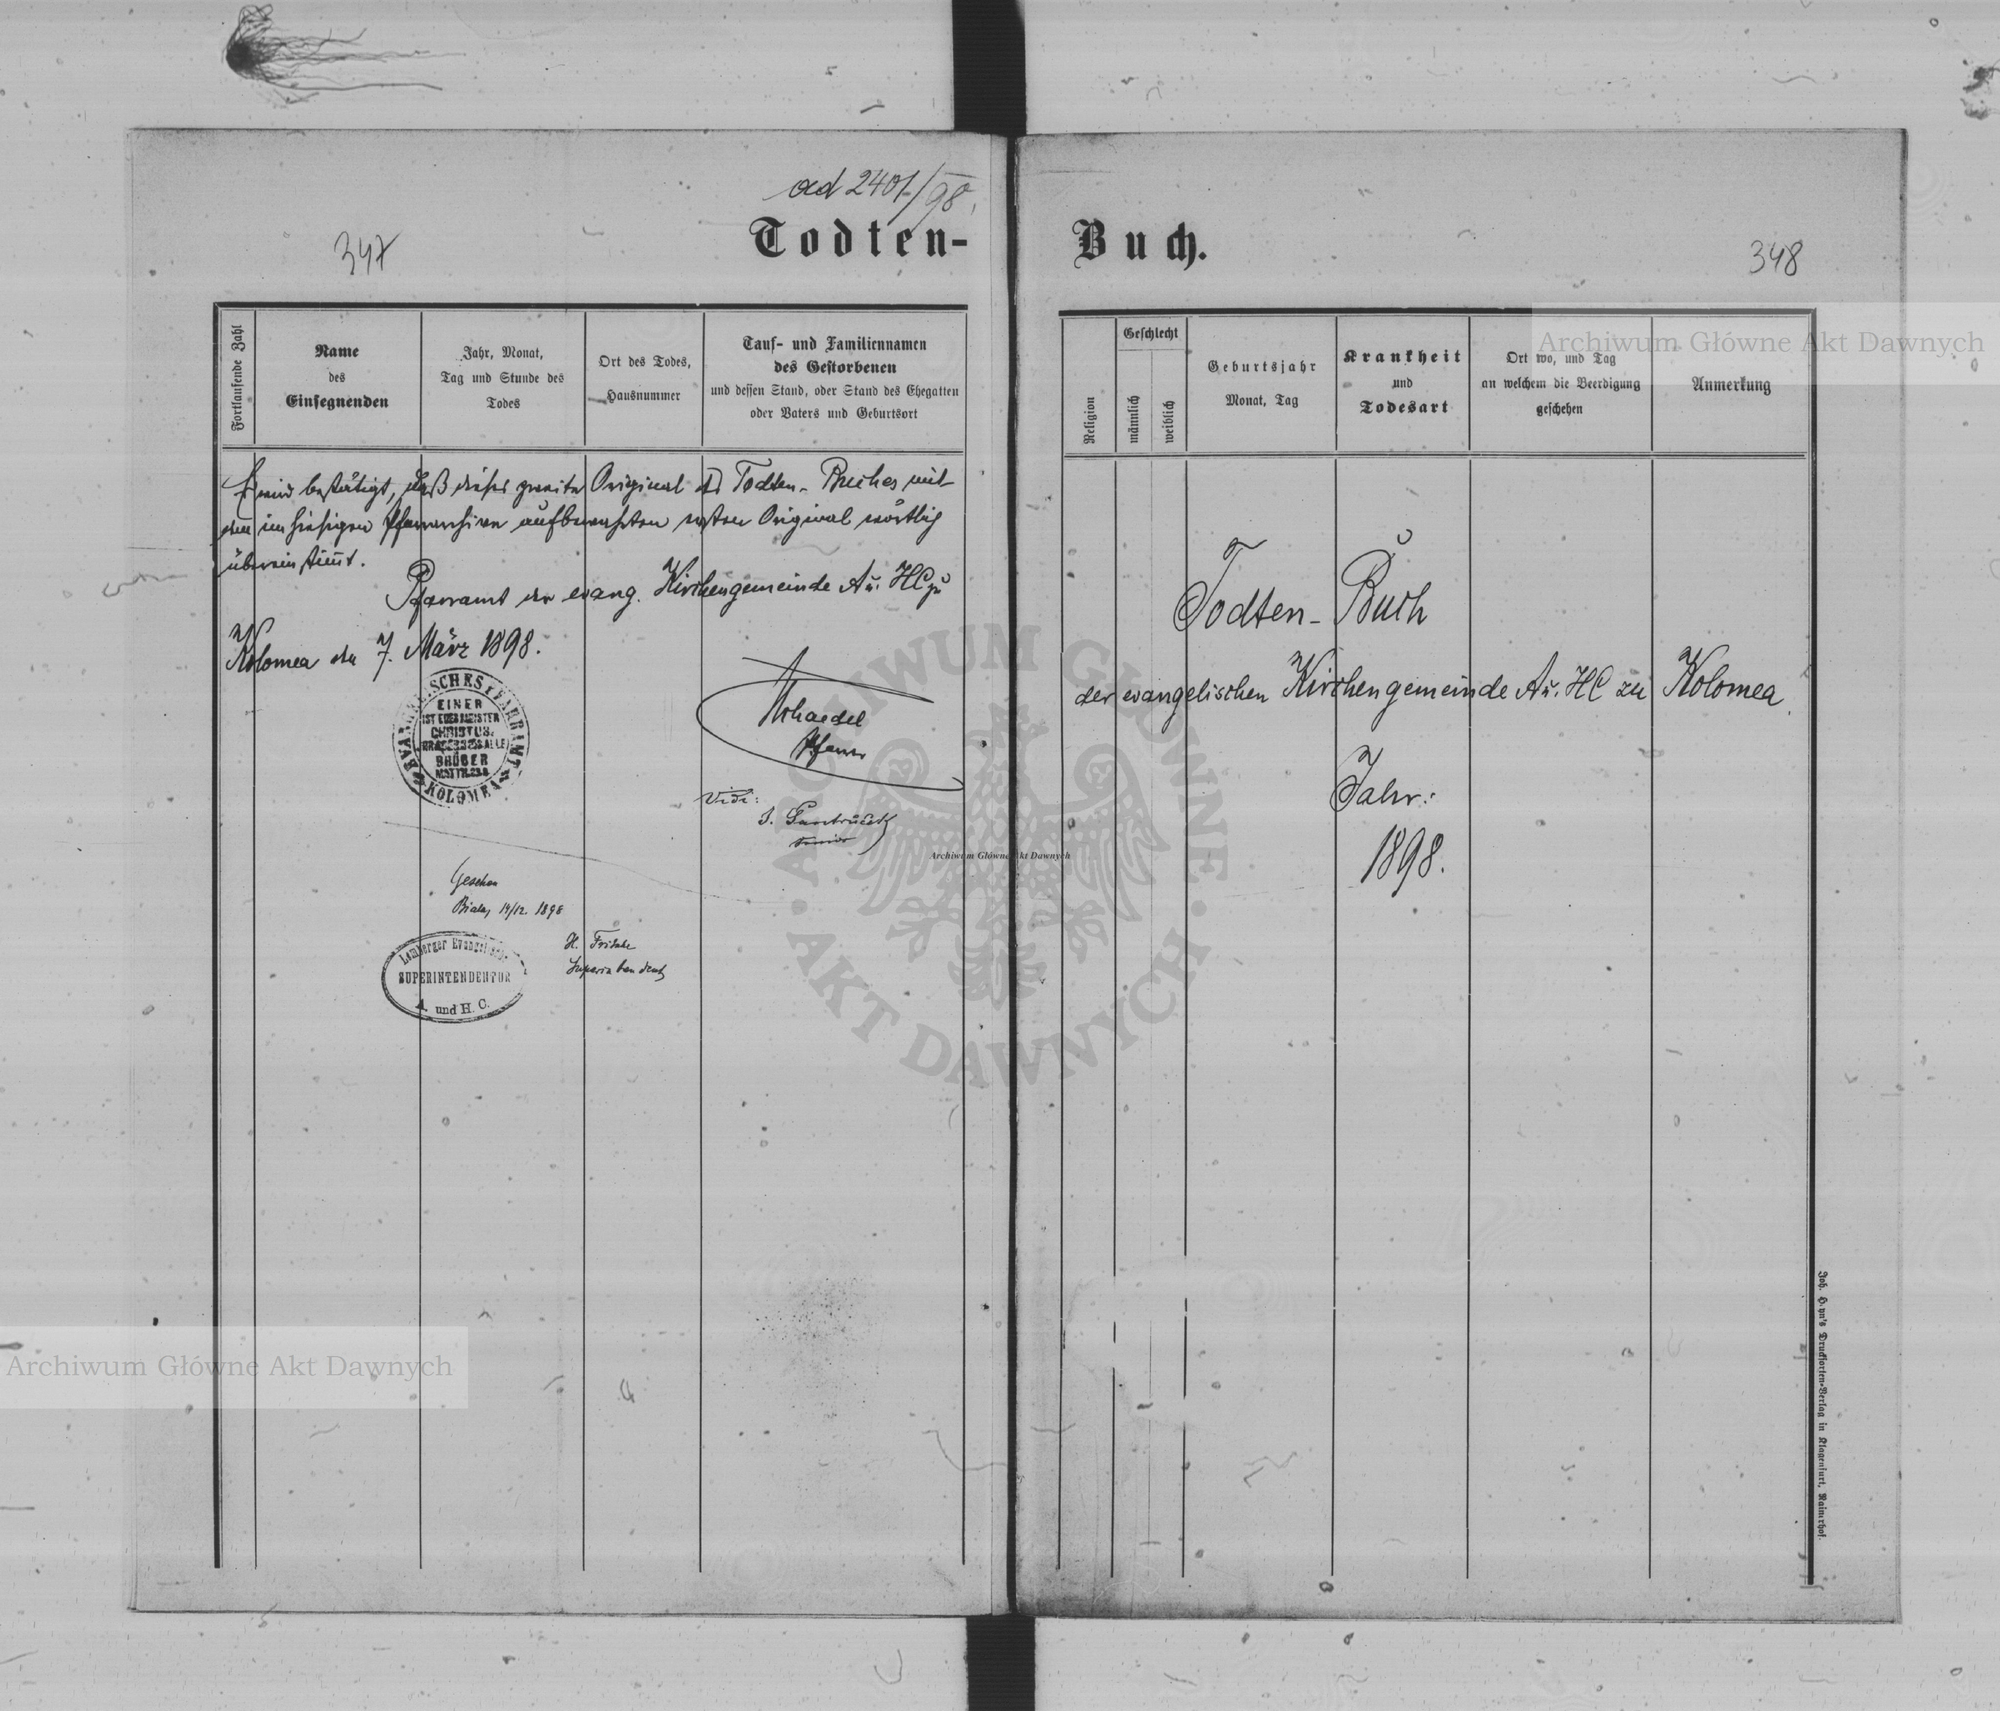 ad 2401/98.
Todten-
347
Fortlaufende Zahl
Name
des
Einsegnenden
Jahr, Monat,
Tag und Stunde des
Todes
Ort des Todes,
Hausnummer
Tauf- und Familiennamen
des Gestorbenen
und dessen Stand, oder Stand des Ehegatten
oder Vaters und Geburtsort
Es wird bestätigt, daß dieses zweite Original des Todten-Buches mit
dem im hiesigen Pfarrarchive aufbewahrten ersten Original wörtlich
übereinstimmt.
Pfarramt der evang. Kirchengemeinde A u. HC zu
Kolomea den 7. März 1898.
EINER
IST EUER MEISTER
CHRISTUS.
BRÜDER
KOLOMEA
Pfarrer
Vidi:
Senior
Gesehen
Biala, 14/12. 1898
Lemberger Evangel.
SUPERINTENDENTUR
A. und H. C.
H. Fritsche
Superintendent
Buch.
348
Religion
Geschlecht
männlich
weiblich
Geburtsjahr
Monat, Tag
Krankheit
und
Todesart
Ort wo, und Tag
an welchem die Beerdigung
geschehen
Anmerkung
Todten-Buch
der evangelischen Kirchengemeinde A u. HC zu Kolomea.
Jahr:
1898.
Joh. Heyn's Drucksorten-Verlag in Klagenfurt.
Archiwum Główne Akt Dawnych
Archiwum Główne Akt Dawnych
Archiwum Główne Akt Dawnych
ARCHIWUM GŁÓWNE
AKT DAWNYCH